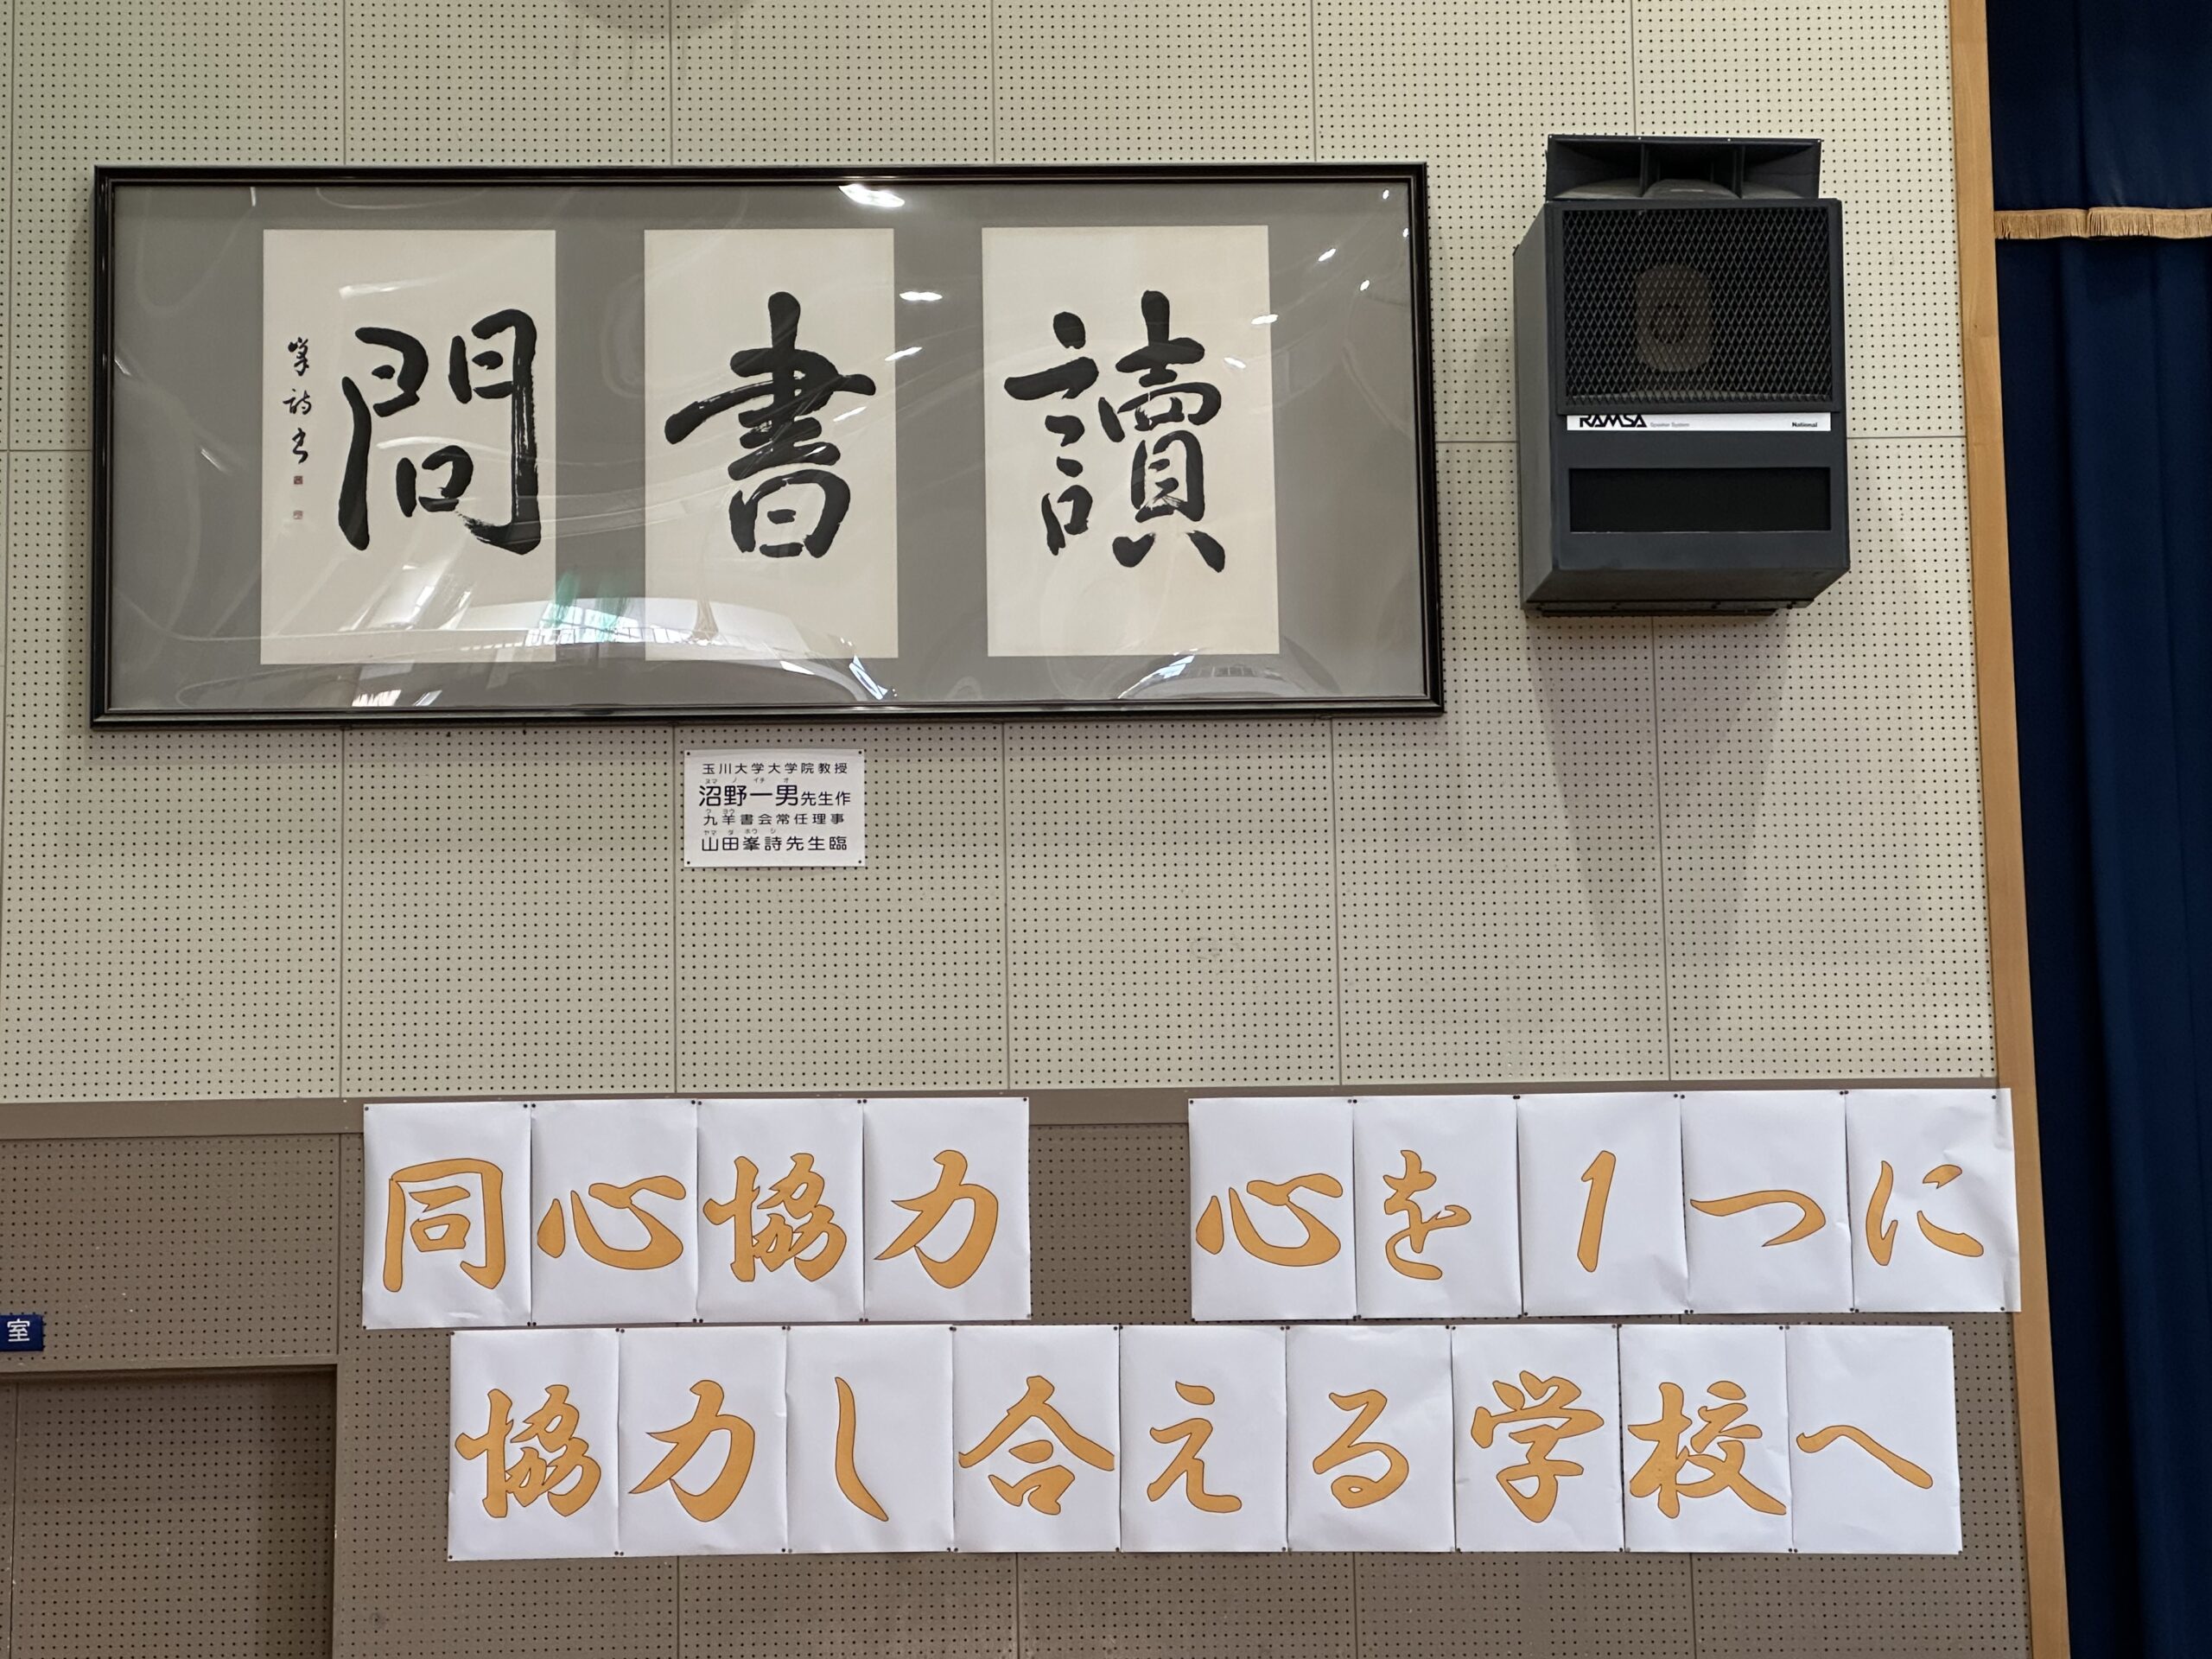 讀書問
峯詩書
RAMSA Speaker System National
玉川大学大学院教授
ヌマノイチオ
沼野一男先生作
クヨウ
九羊書会常任理事
ヤマダホウシ
山田峯詩先生臨
同心協力 心を1つに
室
協力し合える学校へ